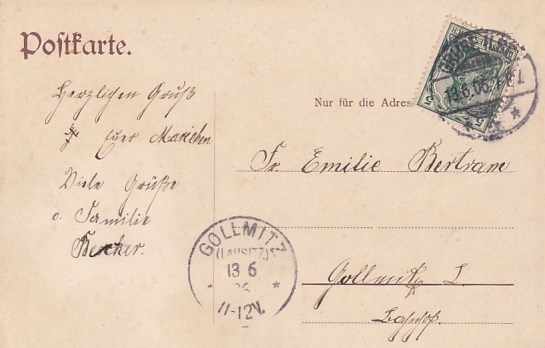 Postkarte.
Herzlichen Gruß
Euer Mariechen
Viele Grüße
v. Familie
Becker.
Nur für die Adres
5
13.6.06
Fr. Emilie Bertram
GOLLMITZ
(LAUSITZ)
13 6
06
11-12V.
*
Gollmitz L.